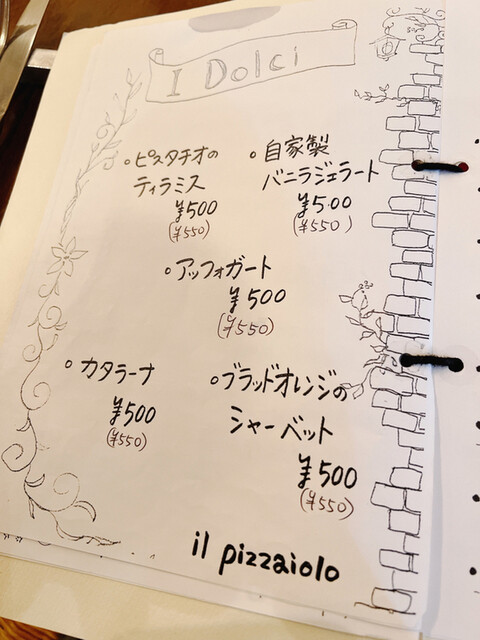 I Dolci
・ピスタチオの
ティラミス
¥500
(¥550)
・自家製
バニラジェラート
¥500
(¥550)
・アッフォガート
¥500
(¥550)
・カタラーナ
¥500
(¥550)
・ブラッドオレンジの
シャーベット
¥500
(¥550)
il pizzaiolo